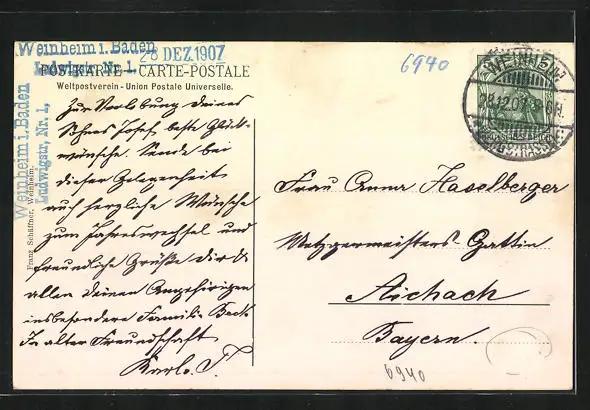 Weinheim i. Baden
Ludwigstr, Nr. 1.
28 DEZ.1907
POSTKARTE — CARTE-POSTALE
Weltpostverein - Union Postale Universelle.
6940
WEINHEIM
28.12.07
Weinheim i. Baden
Ludwigstr, Nr. 1,
Franz Schäffner, Weinheim.
Zur Verlobung deines
Sohnes Josef beste Glück-
wünsche. Sende bei
dieser Gelegenheit
auch herzliche Wünsche
zum Jahreswechsel und
freundliche Grüße dir &
allen deinen Angehörigen
insbesondere Familie Beck
In alter Freundschaft
Karl. T.
Frau Anna Haselberger
Metzgermeisters-Gattin
Aichach
Bayern.
6940